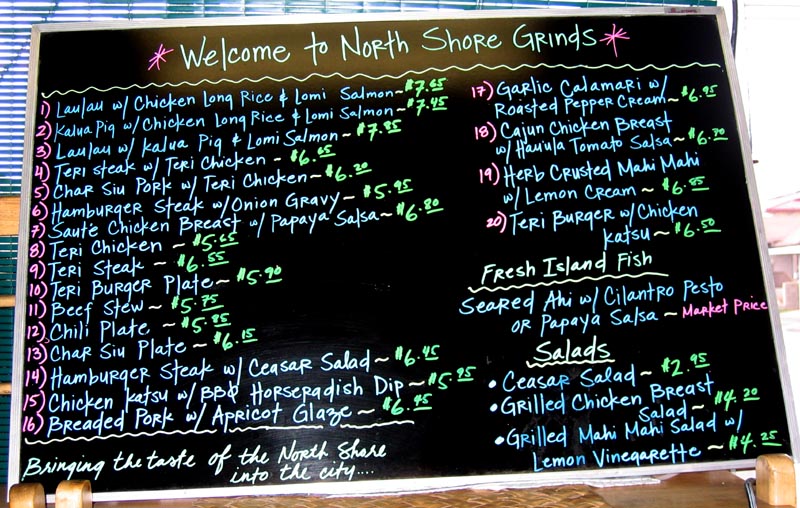 *Welcome to North Shore Grinds*
1) Laulau w/ Chicken Long Rice & Lomi Salmon ~ $7.65
2) Kalua Pig w/ Chicken Long Rice & Lomi Salmon ~ $7.45
3) Laulau w/ Kalua Pig & Lomi Salmon ~ $7.85
4) Teri Steak w/ Teri Chicken ~ $6.65
5) Char Siu Pork w/ Teri Chicken ~ $6.20
6) Hamburger Steak w/ Onion Gravy ~ $5.95
7) Saute Chicken Breast w/ Papaya Salsa ~ $6.80
8) Teri Chicken ~ $5.65
9) Teri Steak ~ $6.55
10) Teri Burger Plate ~ $5.90
11) Beef Stew ~ $5.75
12) Chili Plate ~ $5.85
13) Char Siu Plate ~ $6.15
14) Hamburger Steak w/ Ceasar Salad ~ $6.45
15) Chicken Katsu w/ BBQ Horseradish Dip ~ $5.95
16) Breaded Pork w/ Apricot Glaze ~ $6.45
Bringing the taste of the North Shore
into the city....
17) Garlic Calamari w/
Roasted Pepper Cream ~ $6.95
18) Cajun Chicken Breast
w/ Hauula Tomato Salsa ~ $6.70
19) Herb Crusted Mahi Mahi
w/ Lemon Cream ~ $6.85
20) Teri Burger w/ Chicken
Katsu ~ $6.50
Fresh Island Fish
Seared Ahi w/ Cilantro Pesto
or Papaya Salsa ~ Market Price
Salads
• Ceasar Salad ~ $2.95
• Grilled Chicken Breast
Salad ~ $4.20
• Grilled Mahi Mahi Salad w/
Lemon Vinegarette ~ $4.25